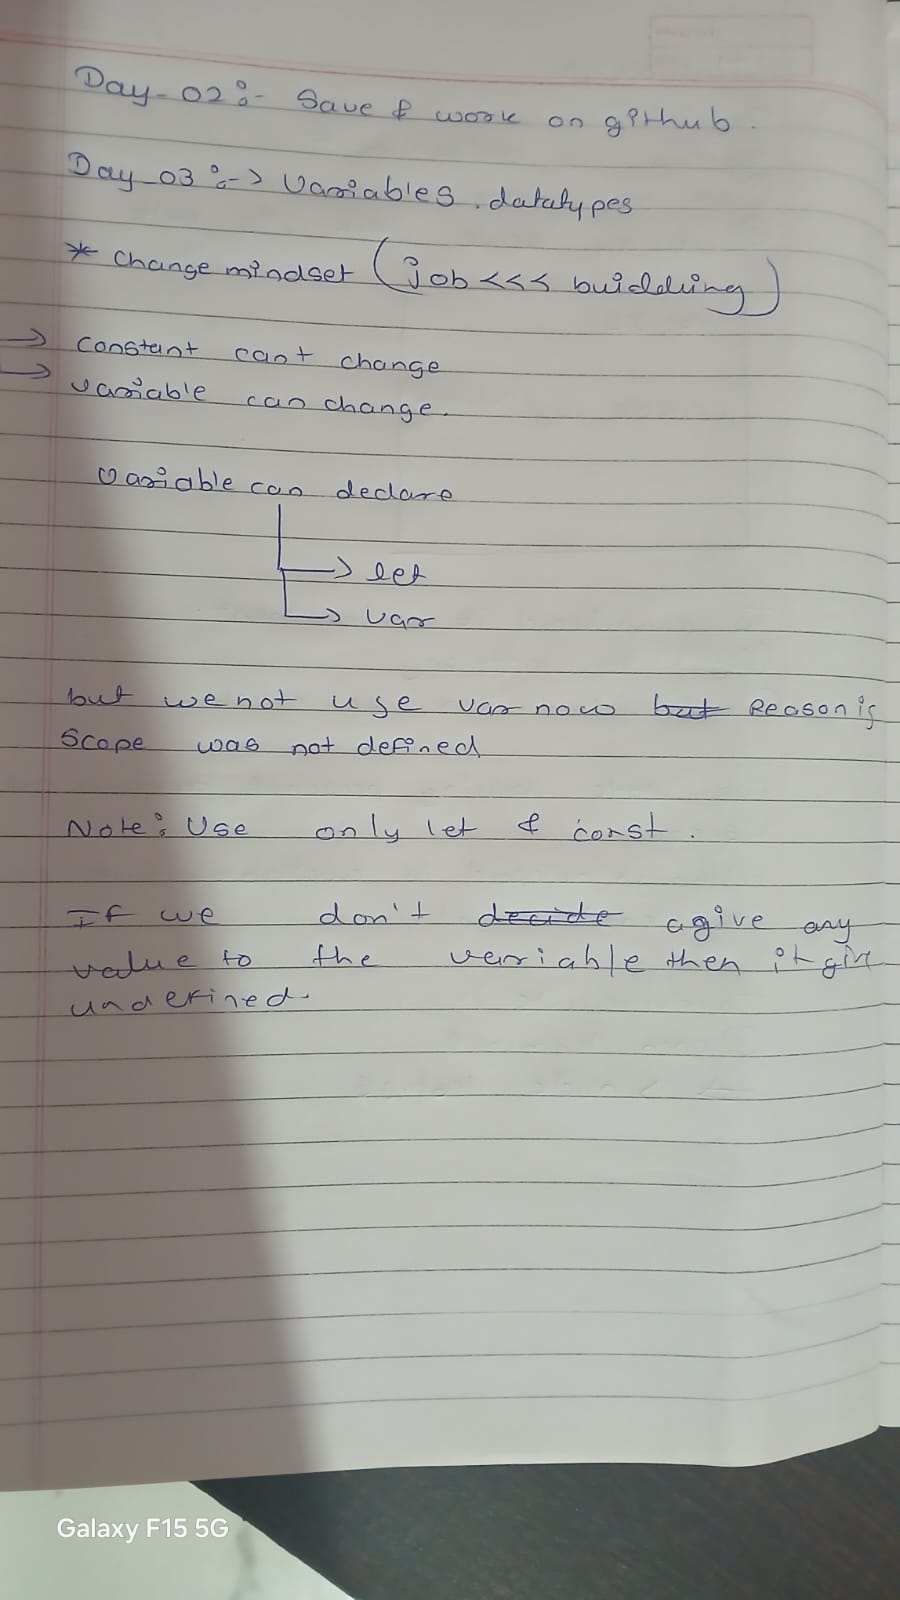 Day-02:- Save & work on github.
Day-03:-> Variables, datatypes
* Change mindset (job <<< buidding)
-> Constant can't change
-> Variable can change.
Variable can declare
-> let
-> var
but we not use var now but Reason is
Scope was not defined
Note: Use only let & const.
If we don't decide agive any
value to the variable then it give
undefined.
Galaxy F15 5G